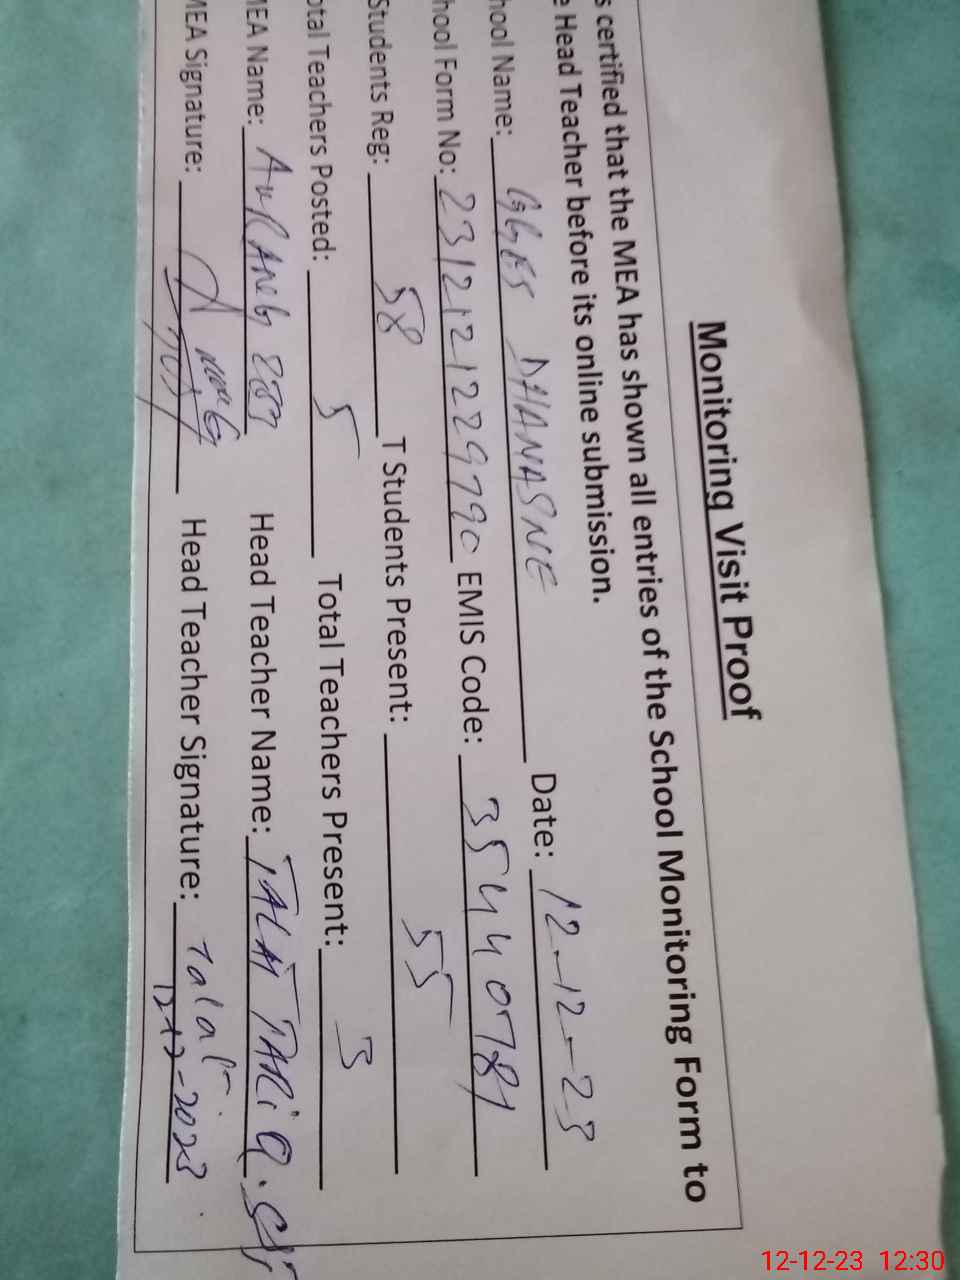 Monitoring Visit Proof
s certified that the MEA has shown all entries of the School Monitoring Form to
e Head Teacher before its online submission.
hool Name: GGES DHIANASNE Date: 12-12-23
hool Form No: 2312121229790 EMIS Code: 35440781
Students Reg: 58 T Students Present: 55
otal Teachers Posted: 5 Total Teachers Present: 3
MEA Name: AURANG Head Teacher Name: TALAT TARiQ.
MEA Signature: Head Teacher Signature: Talat
12-12-2023
12-12-23 12:30